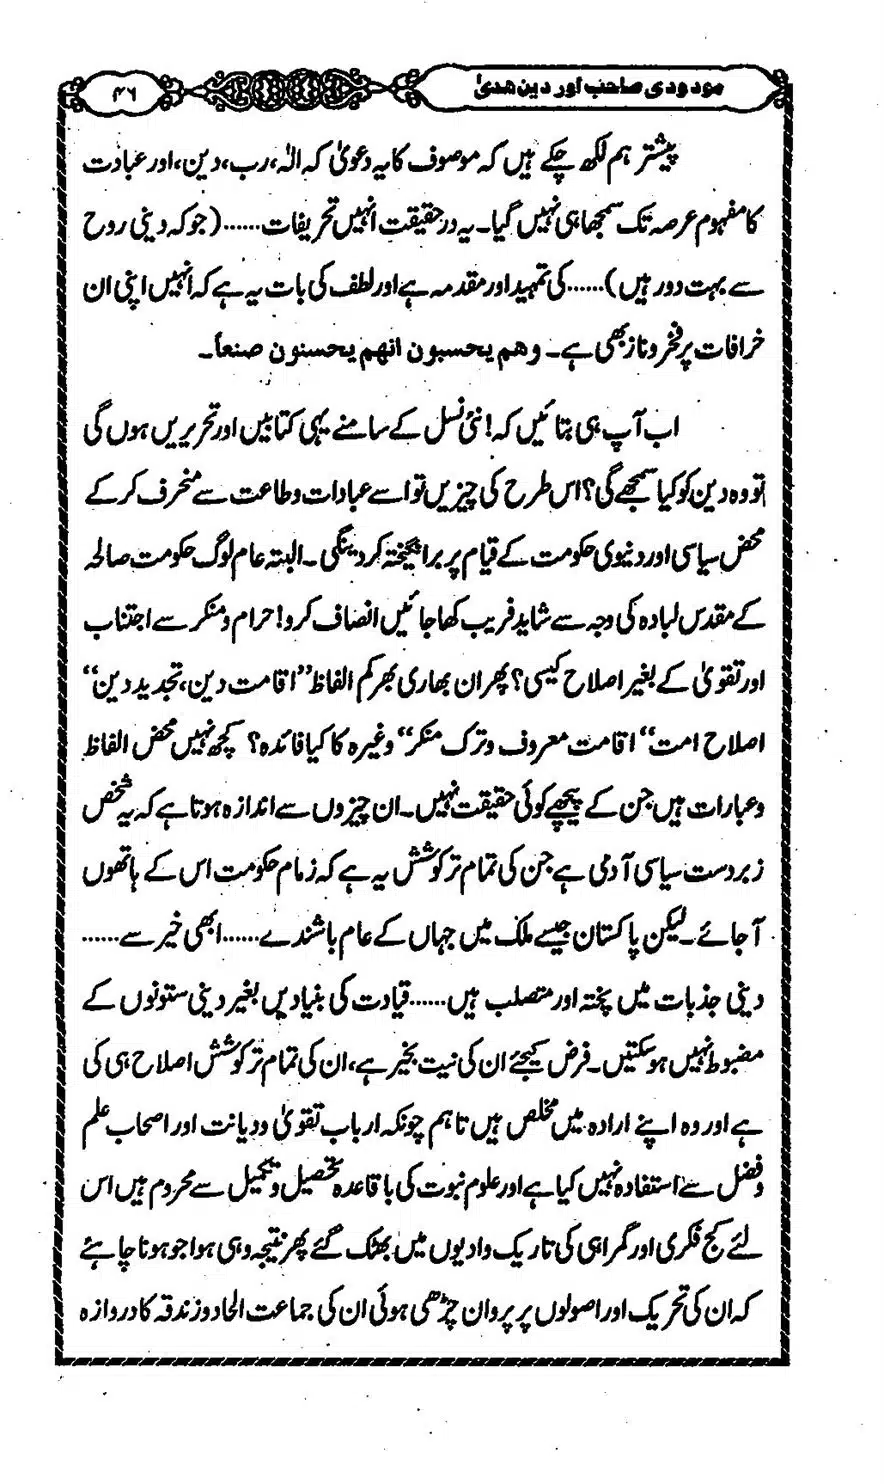 مودودی صاحب اور دین ھدیٰ
۴۶
پیشتر ہم لکھ چکے ہیں کہ موصوف کا یہ دعویٰ کہ الٰہ، رب، دین، اور عبادت
کا مفہوم عرصہ تک سمجھا ہی نہیں گیا۔ یہ در حقیقت انہیں تحریفات......(جو کہ دینی روح
سے بہت دور ہیں)......کی تمہید اور مقدمہ ہے اور لطف کی بات یہ ہے کہ انہیں اپنی ان
خرافات پر فخر و ناز بھی ہے۔ وھم یحسبون انھم یحسنون صنعاً۔
اب آپ ہی بتائیں کہ! نئی نسل کے سامنے یہی کتابیں اور تحریریں ہوں گی
تو وہ دین کو کیا سمجھے گی؟ اس طرح کی چیزیں تو اسے عبادات و طاعت سے منحرف کر کے
محض سیاسی اور دنیوی حکومت کے قیام پر برانگیختہ کر دینگی۔ البتہ عام لوگ حکومت صالحہ
کے مقدس لبادہ کی وجہ سے شاید فریب کھا جائیں انصاف کرو! حرام و منکر سے اجتناب
اور تقویٰ کے بغیر اصلاح کیسی؟ پھر ان بھاری بھر کم الفاظ ”اقامت دین، تجدید دین“
اصلاح امت“ اقامت معروف و ترک منکر“ وغیرہ کا کیا فائدہ؟ کچھ نہیں محض الفاظ
و عبارات ہیں جن کے پیچھے کوئی حقیقت نہیں۔ ان چیزوں سے اندازہ ہوتا ہے کہ یہ شخص
زبردست سیاسی آدمی ہے جن کی تمام تر کوشش یہ ہے کہ زمام حکومت اس کے ہاتھوں
آجائے۔ لیکن پاکستان جیسے ملک میں جہاں کے عام باشندے......ابھی خیر سے......
دینی جذبات میں پختہ اور متصلب ہیں......قیادت کی بنیادیں بغیر دینی ستونوں کے
مضبوط نہیں ہو سکتیں۔ فرض کیجئے ان کی نیت بخیر ہے، ان کی تمام تر کوشش اصلاح ہی کی
ہے اور وہ اپنے ارادہ میں مخلص ہیں تاہم چونکہ ارباب تقویٰ و دیانت اور اصحاب علم
و فضل سے استفادہ نہیں کیا ہے اور علوم نبوت کی با قاعدہ تحصیل و تکمیل سے محروم ہیں اس
لئے کج فکری اور گمراہی کی تاریک وادیوں میں بھٹک گئے پھر نتیجہ وہی ہوا جو ہونا چاہئے
کہ ان کی تحریک اور اصولوں پر پروان چڑھی ہوئی ان کی جماعت الحاد و زندقہ کا دروازہ